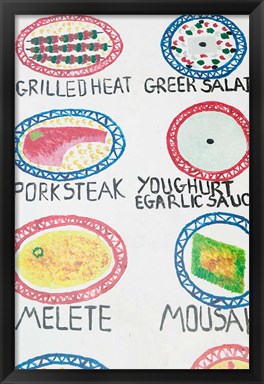 GRILLED HEAT
GREEK SALAT
PORKSTEAK
YOUGHURT
EGARLIC SAUC
MELETE
MOUSA